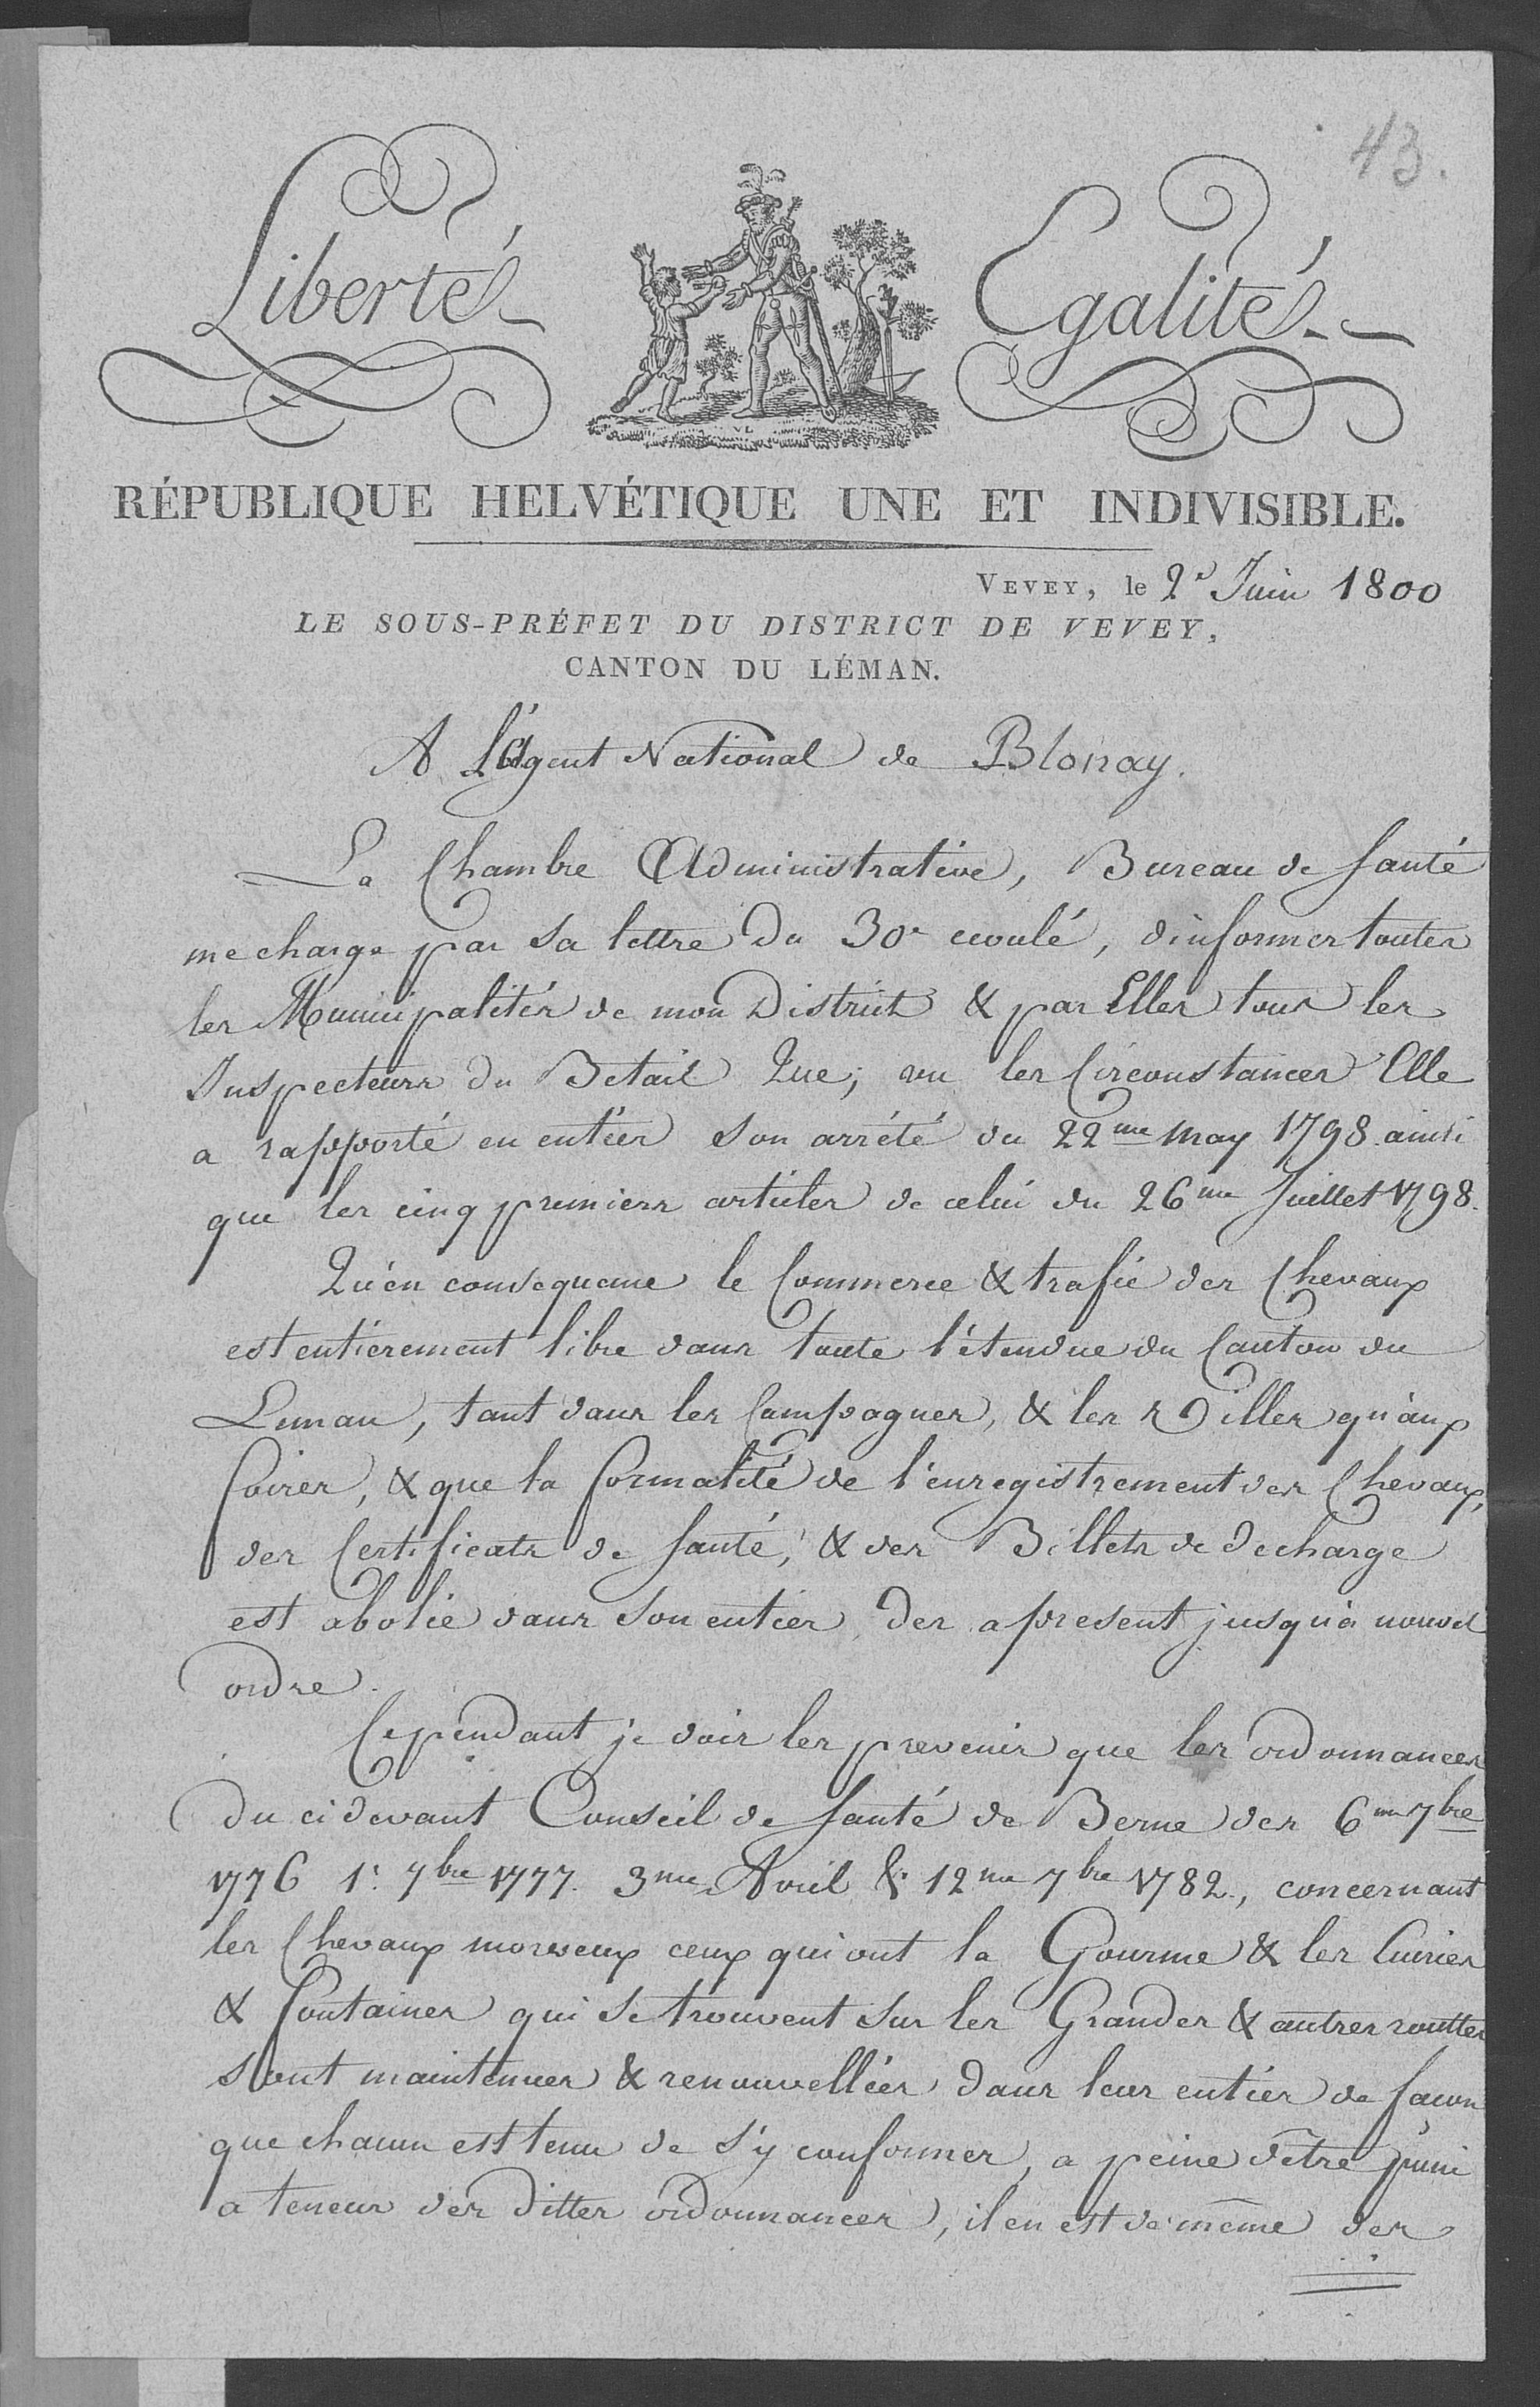 43.
Liberté Egalité
VL
RÉPUBLIQUE HELVÉTIQUE UNE ET INDIVISIBLE.
VEVEY, le 2e Juin 1800
LE SOUS-PRÉFET DU DISTRICT DE VEVEY,
CANTON DU LÉMAN.
A L'Agent National de Blonay.
La Chambre Administrative, Bureau de santé
me charge par sa lettre du 30e ecoulé, d'informer toutes
les Municipalités de mon District & par Elles tous les
Inspecteurs du Betail Que; vu les Circonstances Elle
a rapporté en entier son arrété du 22me may 1798. ainsi
que les cinq premiers articles de celui du 26me Juillet 1798.
Qu'en consequence le Commerce & trafic des Chevaux
est entièrement libre dans toute l'étendue du Canton du
Leman, tant dans les Campagnes, & les Villes qu'aux
foires, & que la formalité de l'enregistrement des Chevaux,
des Certificats de santé, & des Billets de decharge
est abolie dans son entier, des apresent jusqu'à nouvel
ordre.
Cependant je dois les prevenir que les ordonnances
du cidevant Conseil de santé de Berne des 6me 7bre
1776 1r. 7bre 1777. 3me Avril & 12me 7bre 1782., concernant
les Chevaux morveux ceux qui ont la Gourme & les Cuiries
& fontaines qui se trouvent sur les Grandes & autres routtes
sont maintenues & renouvellées dans leur entier de facon
que chacun est tenu de s'y conformer, a peine d'être puni
a teneur des dittes ordonnances, il en est de même des